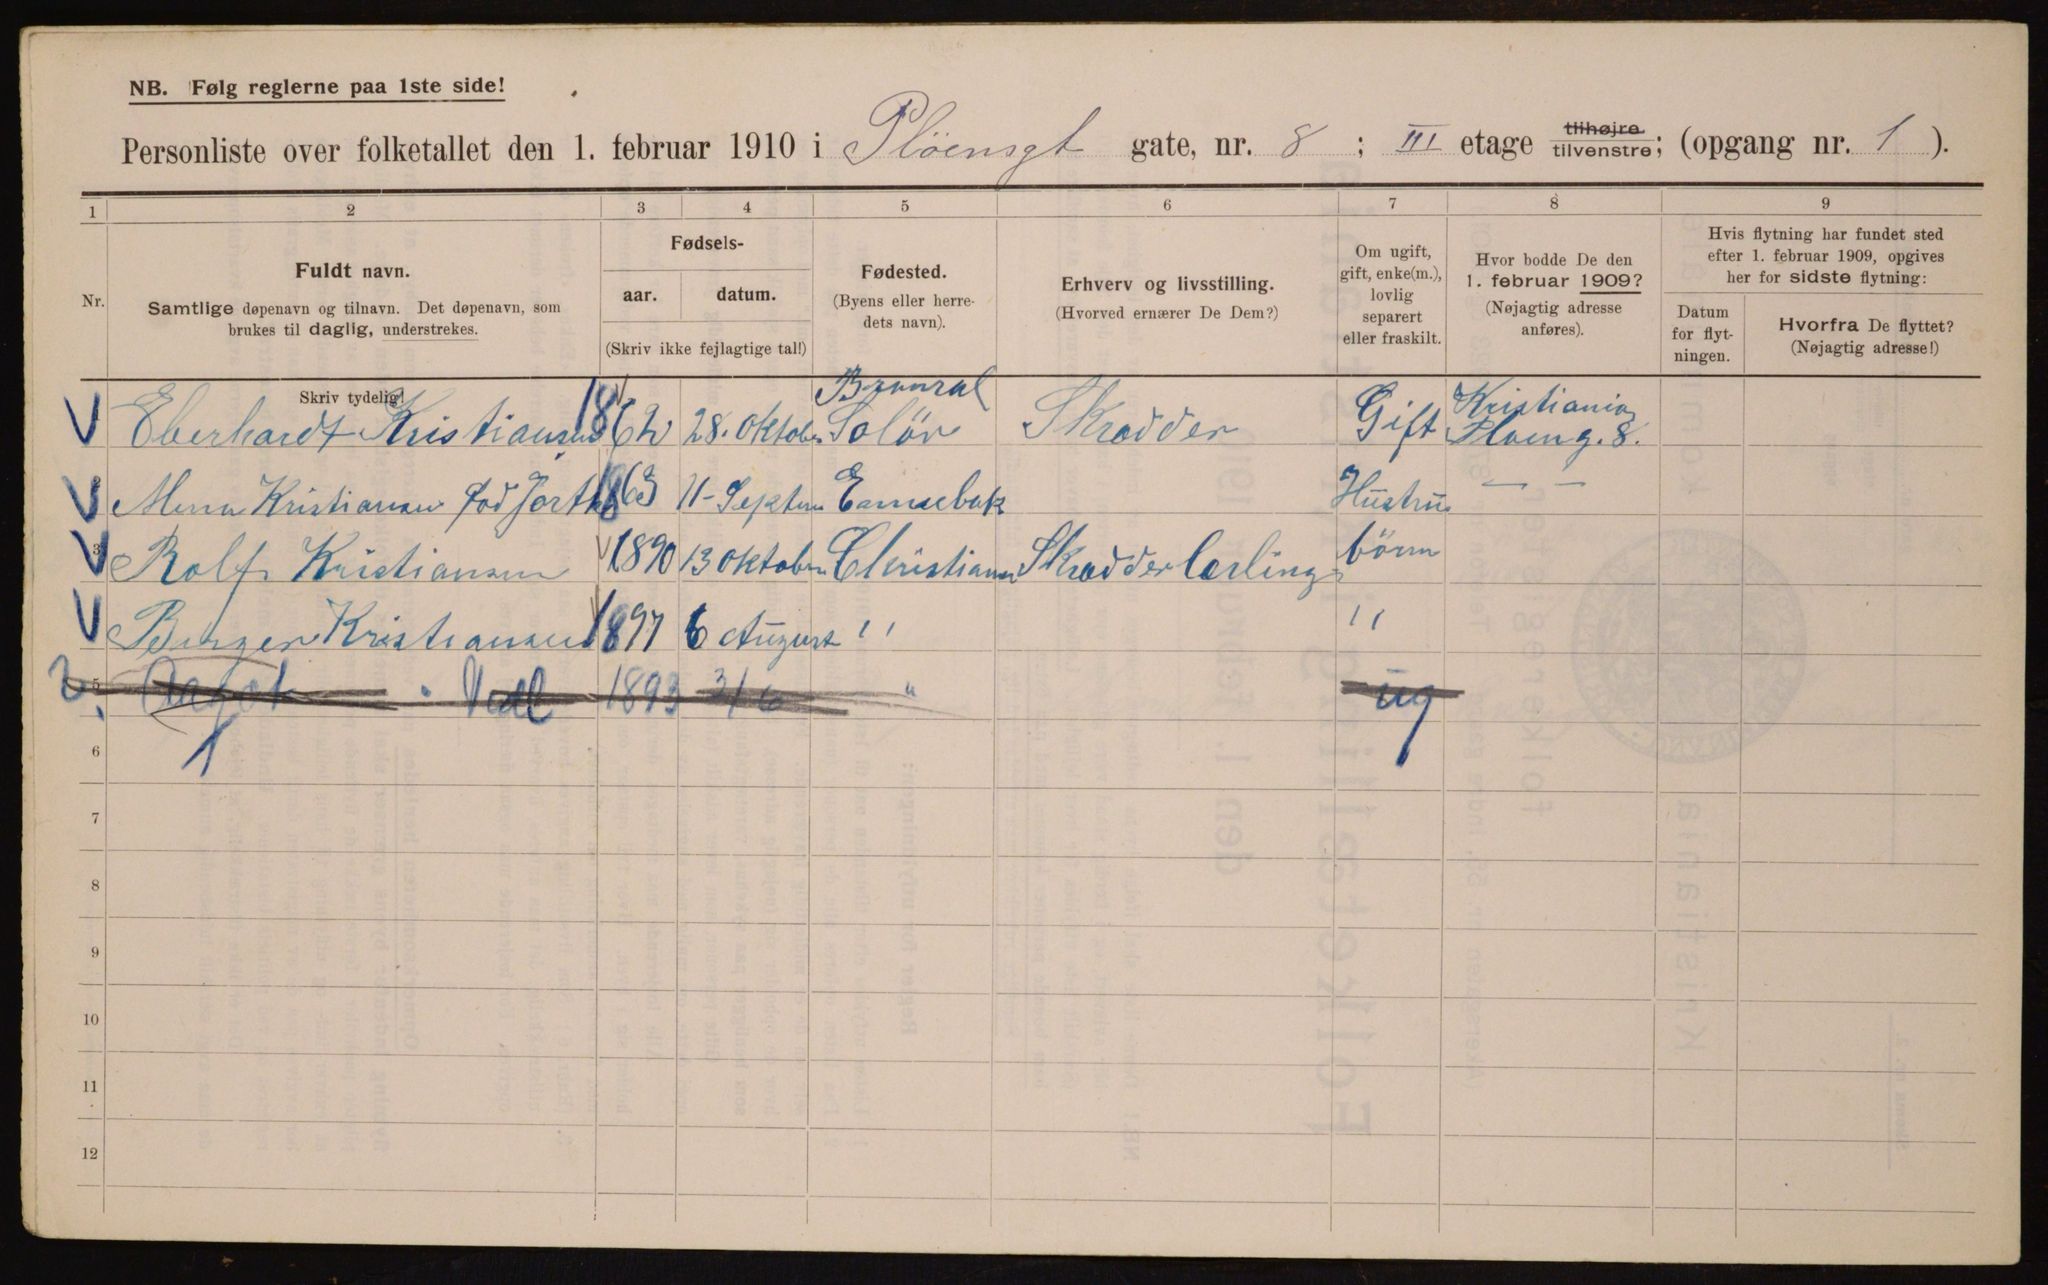 NB. Følg reglerne paa 1ste side!
Personliste over folketallet den 1. februar 1910 i Plöensgt gate, nr. 8 ; III etage tilhøjre tilvenstre; (opgang nr. 1 ).
1 2 3 4 5 6 7 8 9
Nr.
Fuldt navn.
Samtlige døpenavn og tilnavn. Det døpenavn, som
brukes til daglig, understrekes.
Fødsels-
aar. datum.
(Skriv ikke fejlagtige tal!)
Fødested.
(Byens eller herre-
dets navn).
Erhverv og livsstilling.
(Hvorved ernærer De Dem?)
Om ugift,
gift, enke(m.),
lovlig
separert
eller fraskilt.
Hvor bodde De den
1. februar 1909?
(Nøjagtig adresse
anføres).
Hvis flytning har fundet sted
efter 1. februar 1909, opgives
her for sidste flytning:
Datum
for flyt-
ningen.
Hvorfra De flyttet?
(Nøjagtig adresse!)
Skriv tydelig!
V Eberhardt Kristiansen 1862 28. Oktober Solör Skrædder Gift Kristiania
Ploeng. 8.
V Kristiansen född 1863 11 - Hustru — —
3 V Rolf Kristiansen 1890 13 Oktober Skrædder börn
V Birger Kristiansen 1897 6 August " "
5 Aagot 1893 " ug
6
7
8
9
10
11
12